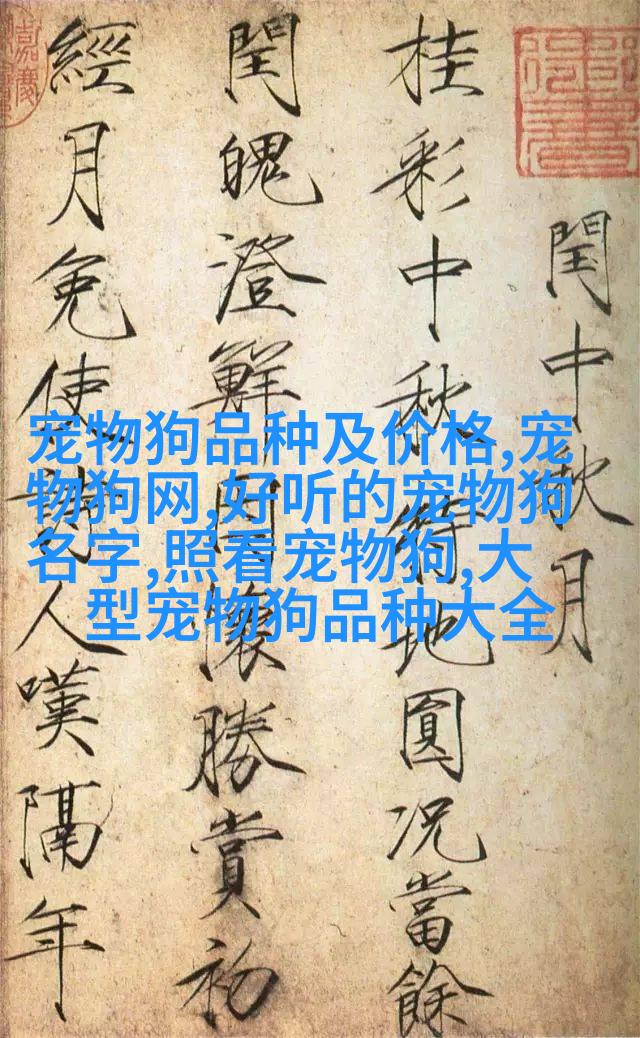 閏中秋月
桂彩中秋特地圓况當餘
閏魄澄鮮因懷勝賞初
經月免使詩人嘆隔年
宠物狗品种及价格,宠
物狗网,好听的宠物狗
名字,照看宠物狗,大
型宠物狗品种大全